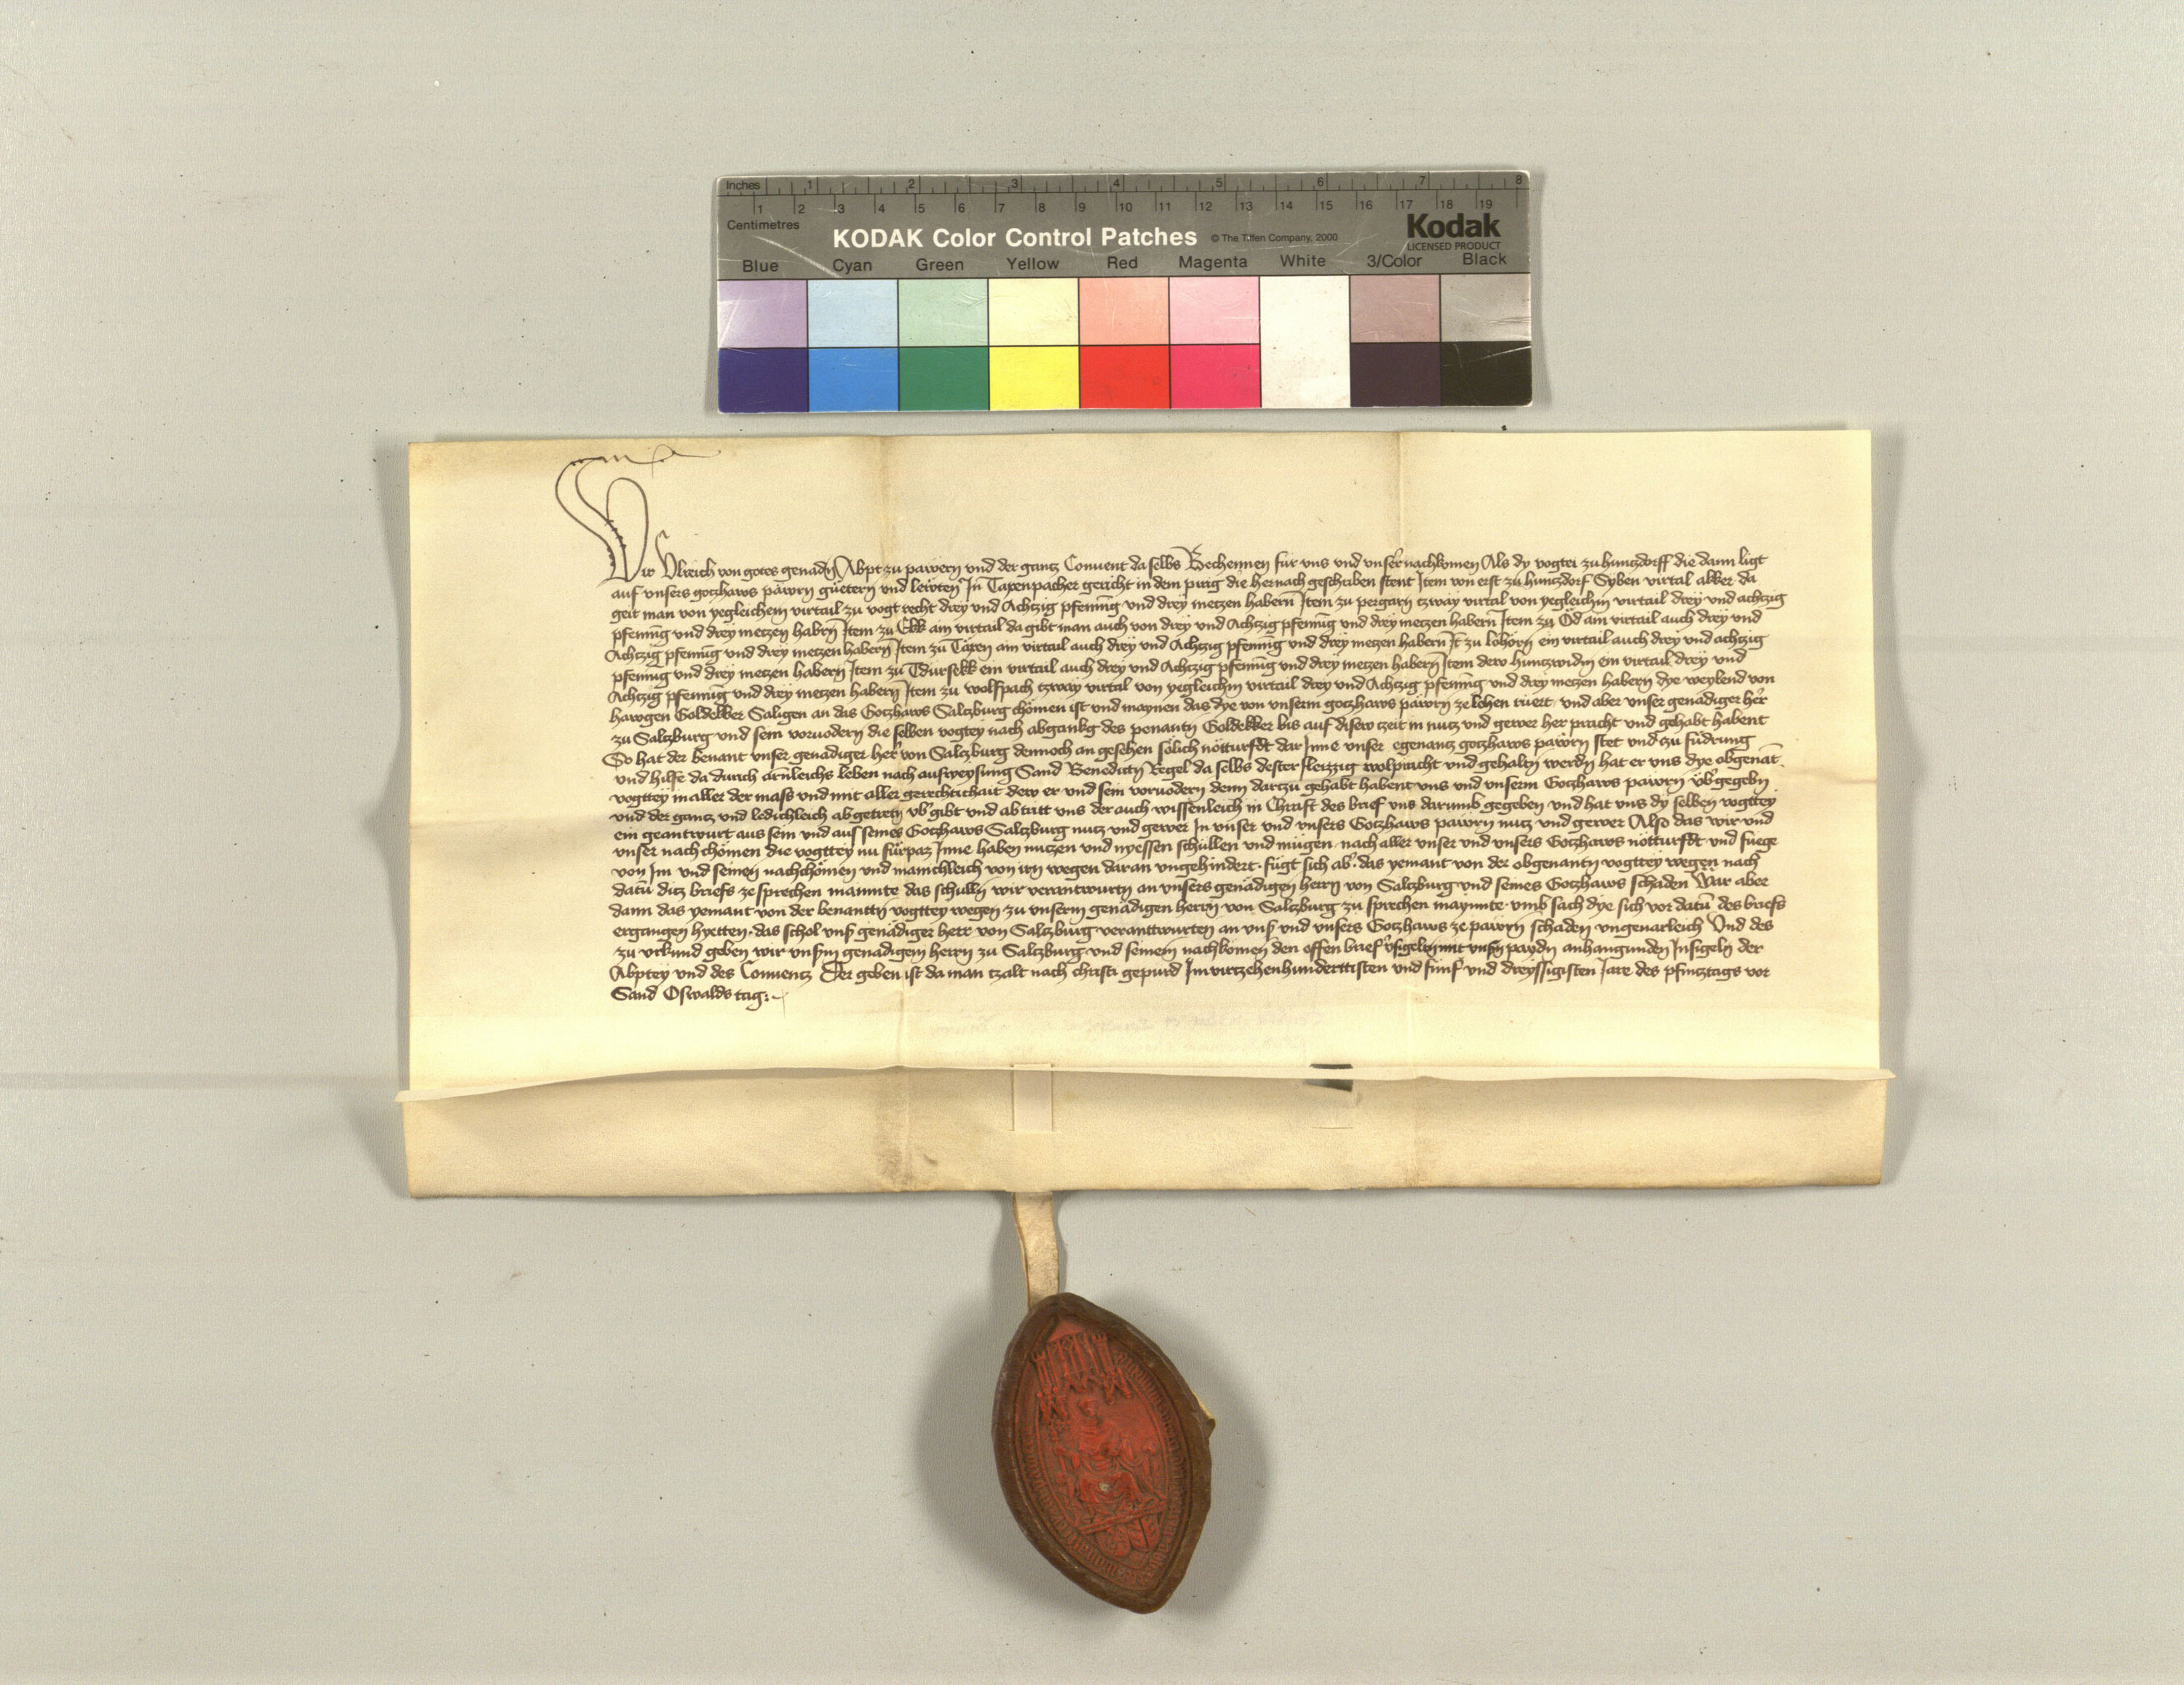 Inches 1 2 3 4 5 6 7 8
1 2 3 4 5 6 7 8 9 10 11 12 13 14 15 16 17 18 19
Centimetres
KODAK Color Control Patches © The Tiffen Company, 2000 Kodak
LICENSED PRODUCT
Blue Cyan Green Yellow Red Magenta White 3/Color Black
Wir Ulreich von gotes genadn Abpt zu pawern und der gantz Convent daselbs Bechennen für uns und unser nachkomen Als dy vogtei zu huntzdorff die dann ligt
auf unsers gotzhaws päwrn güetern und lewten In Taxenpacher gericht in dem pirig die hernach geschriben stent Item von erst zu huntzdorf Syben virtal akker da
geit man von yegleichem virtail zu vogtrecht drey und Achtzig pfennig und drey metzen habern Item zu pergarn tzway virtal von yegleichm virtail drey und achtzig
pfennig und drey metzen habrn Item zu Ekk ain virtail da gibt man auch von drey und Achtzig pfennig und drey metzen habern Item zu Öd ain virtail auch drey und
Achtzig pfennig und drey metzen habern Item zu Täxen ain virtail auch drey und Achtzig pfennig und drey metzen habern It zu löhorn ein virtail auch drey und achtzig
pfennig und drey metzen habern Item zu Tdürsekk ein virtail auch drey und Achtzig pfennig und drey metzen habern Item dew huntzwidm ein virtail drey und
Achtzig pfennig und drey metzen habern Item zu wolfpach tzway virtal von yegleichm virtail drey und Achtzig pfennig und drey metzen habern dye weylend von
hawgen Goldekker Säligen an das Gotzhaws Saltzburg chömen ist und maynen das dye von unserm gotzhaws päwrn ze lehen rüert und aber unser genädiger her
zu Saltzburg und sein vorvodern die selben vogtey nach abgankg des penantn Goldekker bis auf disew zeit in nutz und gewer her pracht und gehabt habent
So hat der benant unser genädiger her von Saltzburg dennoch an gesehen sölich nötturfft dar Inne unser egenantz gotzhaws päwrn stet und zu füdrung
und hilffe da durch ainleichs leben nach ausweysung Sand Benedictn Regel da selbs dester fleizzig wolpracht und gehaltn werdn hat er uns dye obgenat
vogttey in aller der mass und mit aller gerechtichait dew er und sein vorvodern denn dartzu gehabt habent uns und unserm Gotzhaws päwrn übgegebn
und der gantz und ledichleich abgetretn übgibt und abtritt uns der auch wissenleich in Chrafft des brief uns darumb gegeben und hat uns dy selben vogttey
ein geantwurt aus sein und aus seines Gotzhaws Saltzburg nutz und gewer In unser und unsers Gotzhaws päwrn nutz und gewer Also das wir und
unser nachchömen die vogttey nu fürpaz Inne haben nutzen und nyessen schüllen und mügen nach aller unser und unsers Gotzhaws nötturfft und füege
von Im und seinen nachchömen und mänichleich von irn wegen daran ungehindert fügt sich ab das yemant von der obgenantn vogttey wegen nach
datu ditz briefs ze sprechen mainte das schülln wir verantwurtn an unsers genädigen herrn von Saltzburg und seines Gotzhaws schaden Wär aber
dann das yemant von der benanttn vogttey wegen zu unserm genädigen herrn von Saltzburg zu sprechen maynnte umb sach dye sich vor datu des briefs
ergangen hyetten das schol uns genädiger herr von Saltzburg verantwurten an uns und unsers Gotzhaws ze päwrn schaden ungevarleich Und des
zu urkund geben wir unserm genadigem herrn zu Saltzburg und seinem nachkömen den offen brief vsigeltn mit unsrn paydn anhangunden Insigeln der
Abptey und des Conventz Der geben ist da man tzalt nach christi gepurd Im virtzehenhunderttisten und fünf und dreyssigisten Jare des pfintztags vor
Sand Oswalds tag